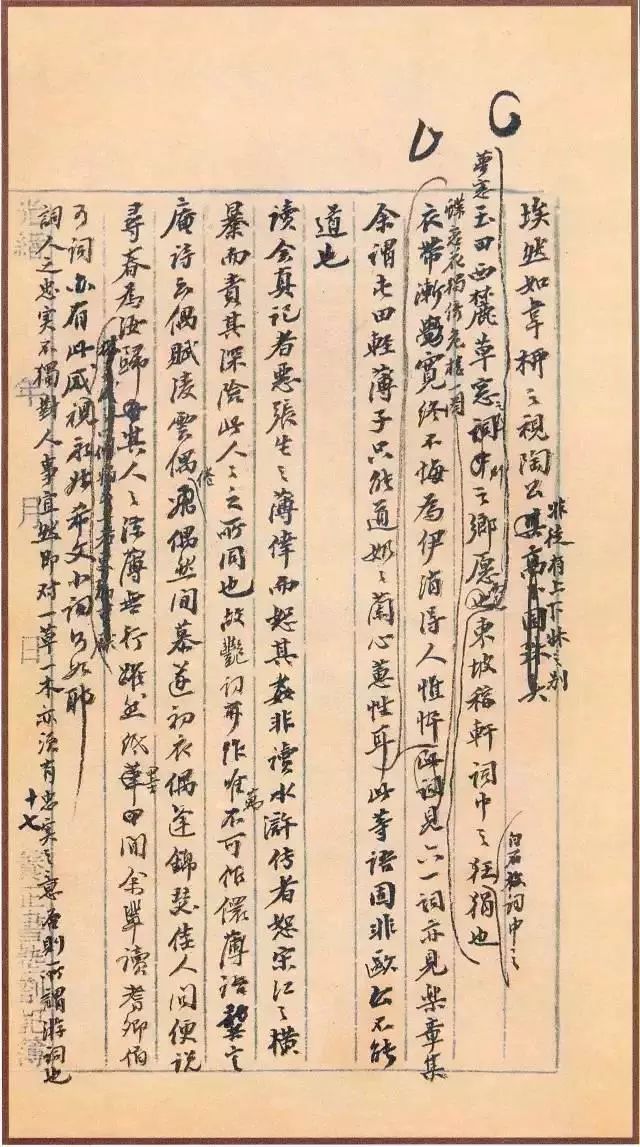 埃然如韋柳之視陶公非徒有上下牀之別
夢窗玉田西麓草窗詞之鄉愿也東坡稼軒詞中之狂狷也
白石詞中之
蝶戀花獨倚危樓一闋
衣帶漸覺寬終不悔為伊消得人憔悴此詞見六一詞亦見樂章集
余謂屯田輕薄子只能道奶奶蘭心蕙性耳此等語固非歐公不能
道也
讀会真記者惡張生之薄倖而恕其姦非讀水滸传者恕宋江之橫
暴而責其深險此人人之所同也故艷詞可作唯萬不可作儇薄語龔定
庵詩云偶賦凌雲偶倦飛偶然間慕遂初衣偶逢錦瑟佳人問便說
尋春為汝歸其人之涼薄無行躍然紙墨間余輩讀耆卿伯
可詞亦有此感視永叔希文小詞何如耶
詞人之忠實不獨對人事宜然即对一草一木亦須有忠实之意否則所謂游詞也
十七
光緒 年 月 日 養正書塾劄記簿